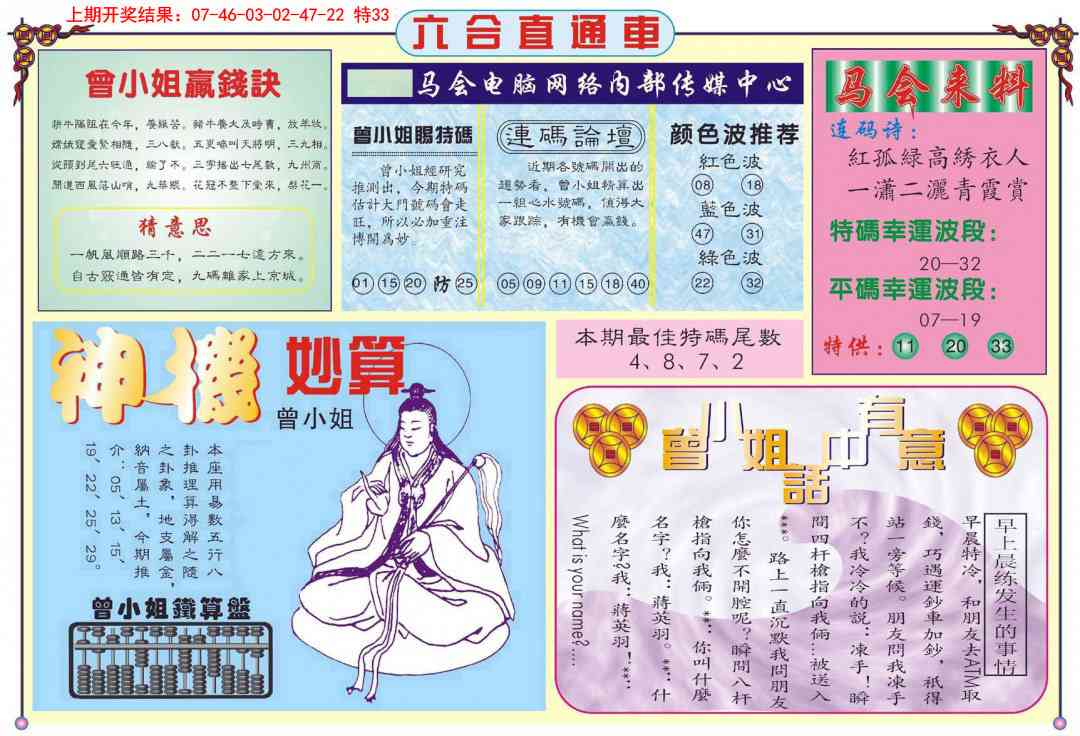 上期开奖结果：07-46-03-02-47-22 特33
六合直通車
曾小姐贏錢訣
耕牛隔阻在今年，養緣苦。豬牛養大及時賣，放羊牧。
嫦娥寵愛緊相隨，三八猷。五更啼叫天將明，三九相。
從頭到尾六旺漁，緣了不。三字搖出七尾數，九州商。
開進西風落山哨，九華服。花冠不整下堂來，梨花一。
猜意思
一帆風順路三千，二二一七遠方來。
自古窮通皆有定，九碼離家上京城。
马会电脑网络内部传媒中心
曾小姐賜特碼
曾小姐經研究
推測出，今期特碼
估計大門號碼會走
旺，所以必加重注
博開為妙。
01 15 20 防 25
連碼論壇
近期各號碼開出的
趨勢看，曾小姐精算出
一組心水號碼，值得大
家跟踪，有機會贏錢。
05 09 11 15 18 40
颜色波推荐
紅色波
08 18
藍色波
47 31
綠色波
22 32
马会来料
连码诗：
紅孤緑高綉衣人
一瀟二灑青霞賞
特碼幸運波段：
20—32
平碼幸運波段：
07—19
特供：11 20 33
神機妙算
曾小姐
本座用易數五行八
卦推理算得解之隨
之卦象，地支屬金，
納音屬土，今期推
介：05、13、15、
19、22、25、29。
曾小姐鐵算盤
本期最佳特碼尾數
4、8、7、2
曾小姐話中有意
早上晨练发生的事情
早晨特冷，和朋友去ATM取
錢，巧遇運鈔車加鈔，祇得
站一旁等候。朋友問我凍手
不？我冷冷的説：凍手！瞬
間四杆槍指向我倆…被送入
***。路上一直沉默我問朋友
你怎麼不開腔呢？瞬間八杆
槍指向我倆。**：你叫什麼
名字？我：蔣英羽。**：什
麼名字?我：蔣英羽！**：
What is your name?....